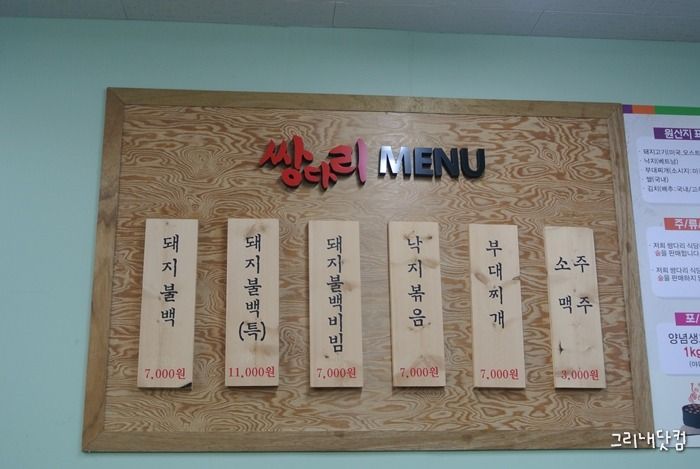 쌍다리 MENU
돼지불백
7,000원
돼지불백(특)
11,000원
돼지불백비빔
7,000원
낙지볶음
7,000원
부대찌개
7,000원
소주
맥주
3,000원
원산지 표
· 돼지고기(미국,오스트
· 낙지(베트남)
· 부대찌개(소시지:미
· 쌀(국내)
· 김치(배추:국내/고
주/류
· 저희 쌍다리 식당
술을 판매합니다
· 저희 쌍다리 식당
술을 판매하지
포/
양념생
1kg
그리내닷컴